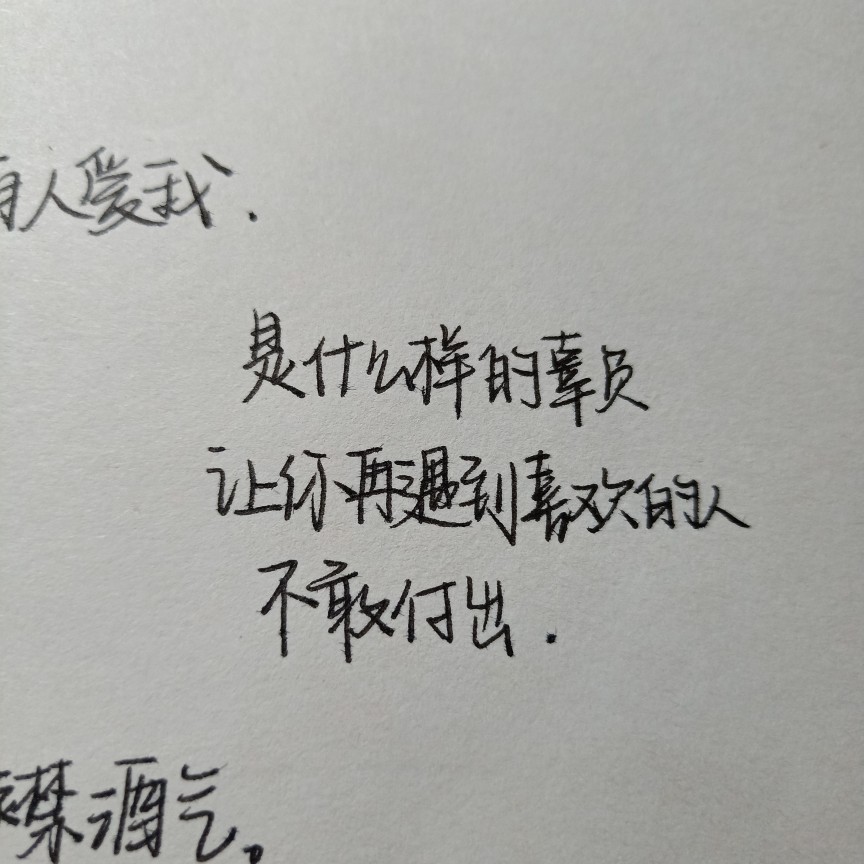 有人爱我.
是什么样的辜负
让你再遇到喜欢的人
不敢付出.
襟酒气。